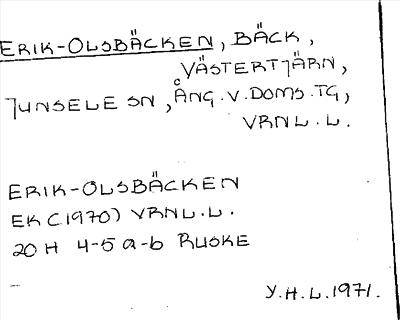 ERIK-OLSBÄCKEN, BÄCK,
VÄSTERTJÄRN,
JUNSELE SN, ÅNG.V.DOMS.TG,
VRNL.L.
ERIK-OLSBÄCKEN
EK (1970) VRNL.L.
20 H 4-5 a-b RUSKE
Y.H.L.1971.